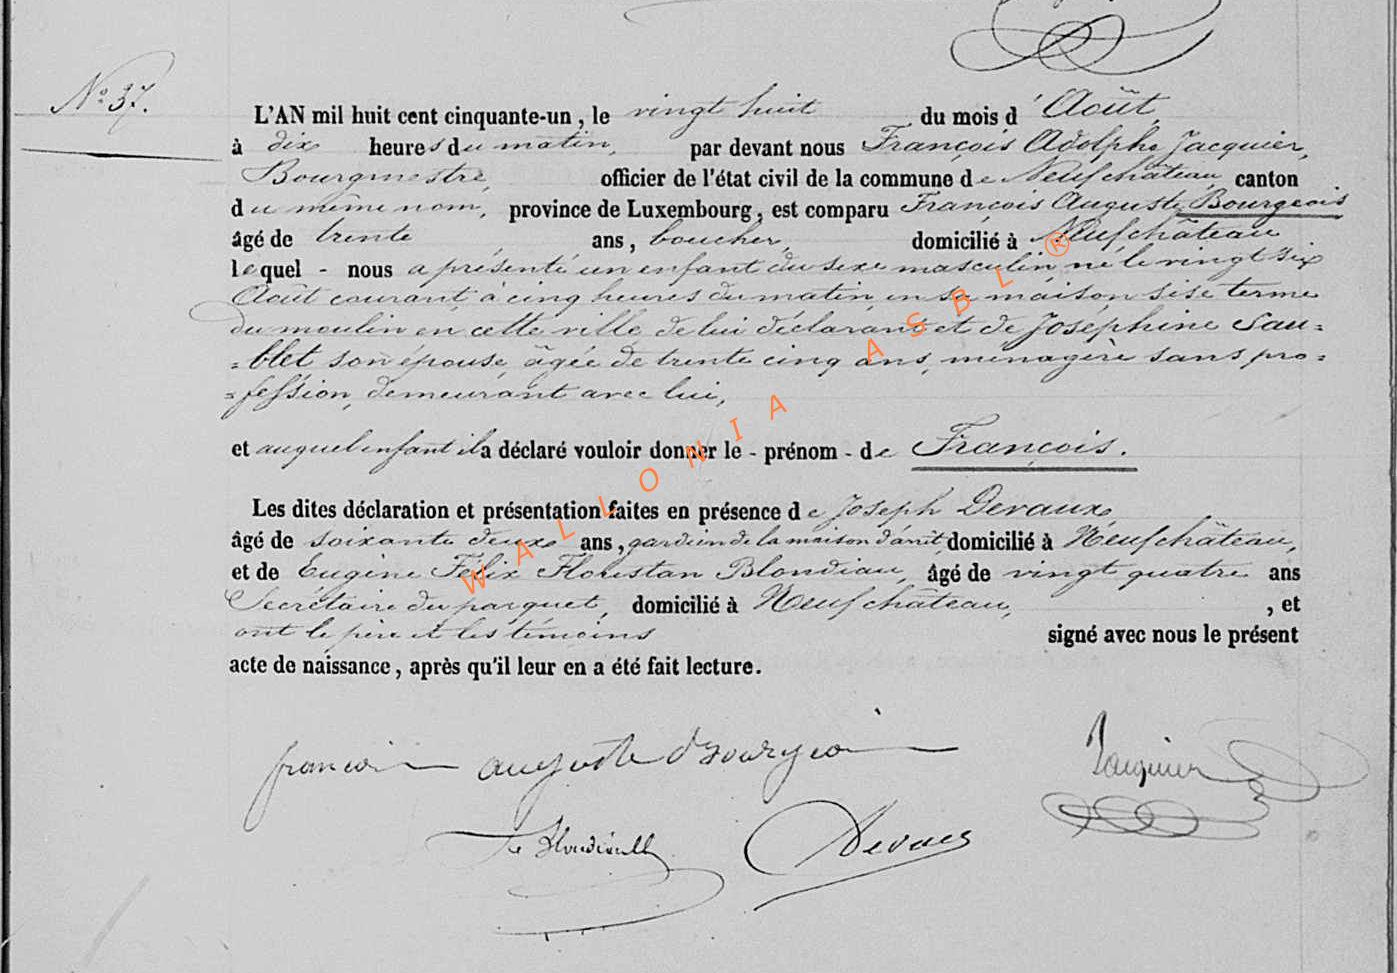 N° 37.
L'AN mil huit cent cinquante-un, le vingt huit du mois d'Août,
à dix heures du matin, par devant nous François Adolphe Jacquier,
Bourgmestre, officier de l'état civil de la commune de Neufchâteau, canton
du même nom, province de Luxembourg, est comparu François Auguste Bourgeois
âgé de trente ans, boucher, domicilié à Neufchâteau
lequel - nous a présenté un enfant du sexe masculin, né le vingt six
Août courant, à cinq heures du matin, en sa maison sise terme
du moulin en cette ville, de lui déclarant et de Joséphine Sau=
=blet son épouse, âgée de trente cinq ans, ménagère sans pro=
=fession, demeurant avec lui,
et auquel enfant il a déclaré vouloir donner le - prénom - de François.
Les dites déclaration et présentation faites en présence de Joseph Devaux
âgé de soixante deux ans, gardien de la maison d'arrêt, domicilié à Neufchâteau,
et de Eugène Felix Florestan Blondiau, âgé de vingt quatre ans
Secrétaire du parquet, domicilié à Neufchâteau, , et
ont le père et les témoins signé avec nous le présent
acte de naissance, après qu'il leur en a été fait lecture.
françois auguste Bourgeois
Jacquier
Devaux
WALLONIA ASBL ®